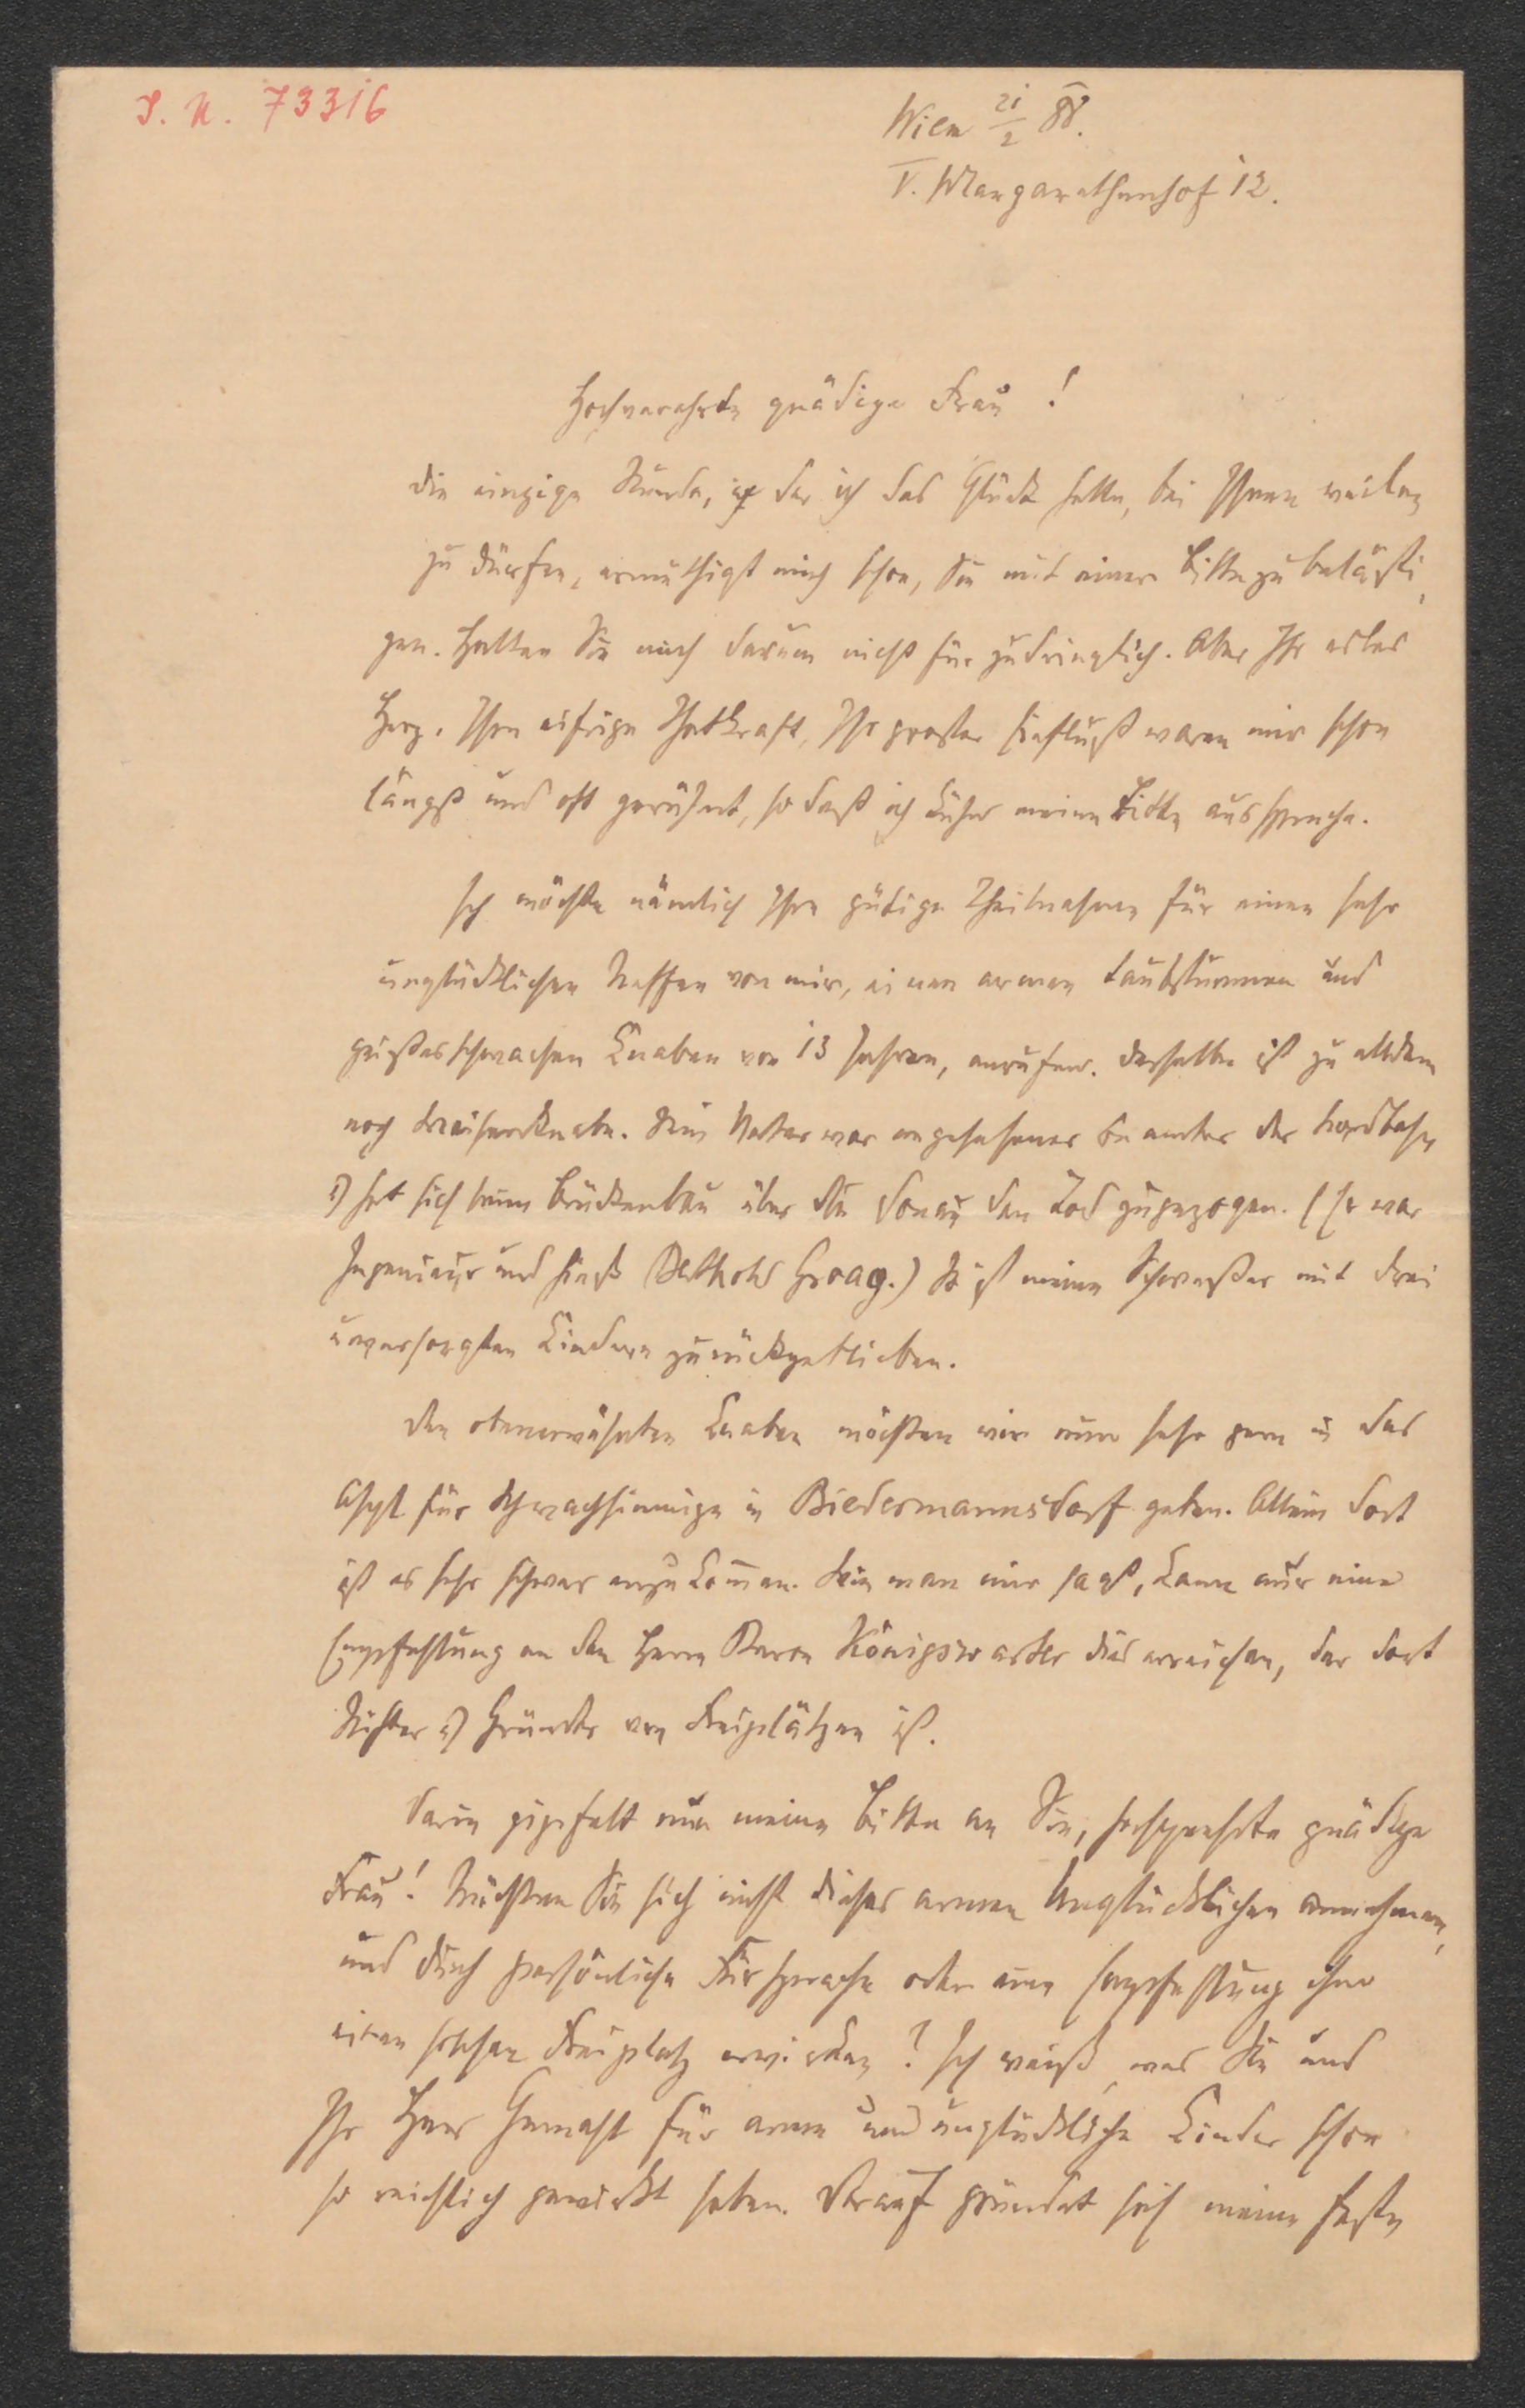 I. N. 73316
Wien 21/2 88.
V. Margarethenhof 12.
Hochverehrte gnädige Frau!
Die einzige Stunde, in der ich das Glück hatte, bei Ihnen weilen
zu dürfen, ermuthigt mich schon, Sie mit einer Bitte zu belästi
gen. Halten Sie mich darum nicht für zudringlich. Aber Ihr edles
Herz, Ihre eifrige Thatkraft, Ihr großer Einfluß waren mir schon
längst und oft gerühmt, so daß ich kühn meine Bitte ausspreche.
Ich möchte nämlich Ihre gütige Theilnahme für einen sehr
unglücklichen Neffen von mir, einen armen taubstummen und
geistesschwachen Knaben von 13 Jahren, anrufen. Derselbe ist zu alldem
noch Waisenknabe. Sein Vater war angesehener Beamter der Nordbahn
u hat sich beim Brückenbau über die Donau den Tod zugezogen. (Er war
Ingenieur und hieß Berthold Groag.) So ist meine Schwester mit drei
unversorgten Kindern zurückgeblieben.
Den obenerwähnten Knaben möchten wir nun sehr gern in das
Asyl für Schwachsinnige in Biedermannsdorf geben. Allein dort
ist es sehr schwer anzukommen. Wie man mir sagt, kann nur eine
Empfehlung an den Herrn Baron Königswarter dies erreichen, der dort
Stifter u Gründer von Freiplätzen ist.
Darin gipfelt nun meine Bitte an Sie, hochgeehrte gnädige
Frau! Möchten Sie sich nicht dieses armen Unglücklichen annehmen,
und durch persönliche Fürsprache oder eine Empfehlung ihm
einen solchen Freiplatz erwirken? Ich weiß, was Sie und
Ihr Herr Gemahl für arme und unglückliche Kinder schon
so reichlich gewirkt haben. Darauf gründet sich meine feste